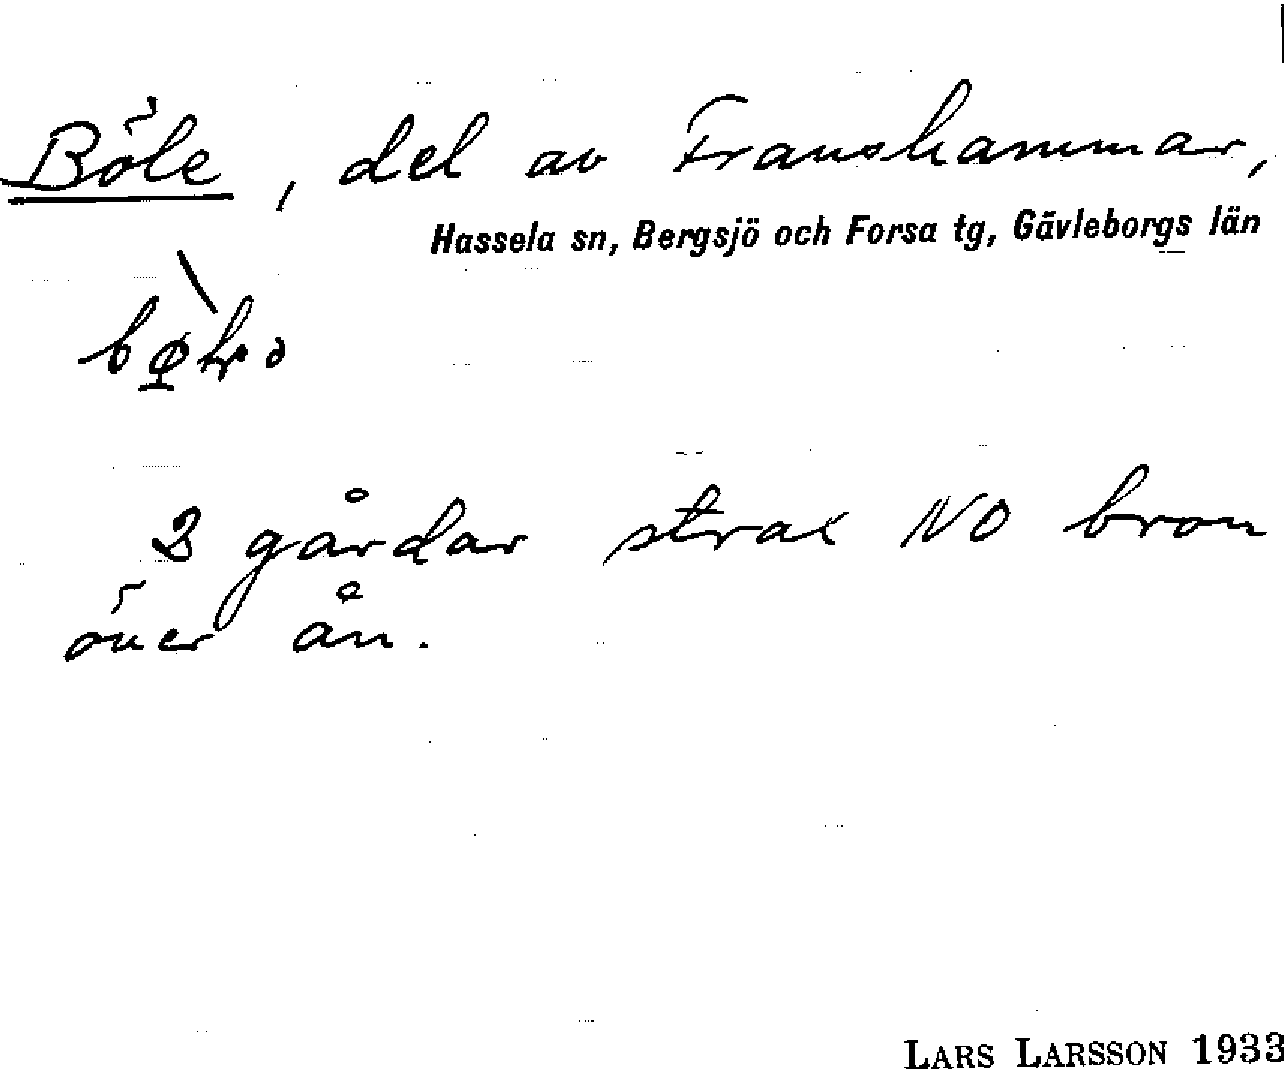 Böle, del av Franshammar,
Hassela sn, Bergsjö och Forsa tg, Gävleborgs län
gårdar strax NO bron
över ån.
LARS LARSSON 1933